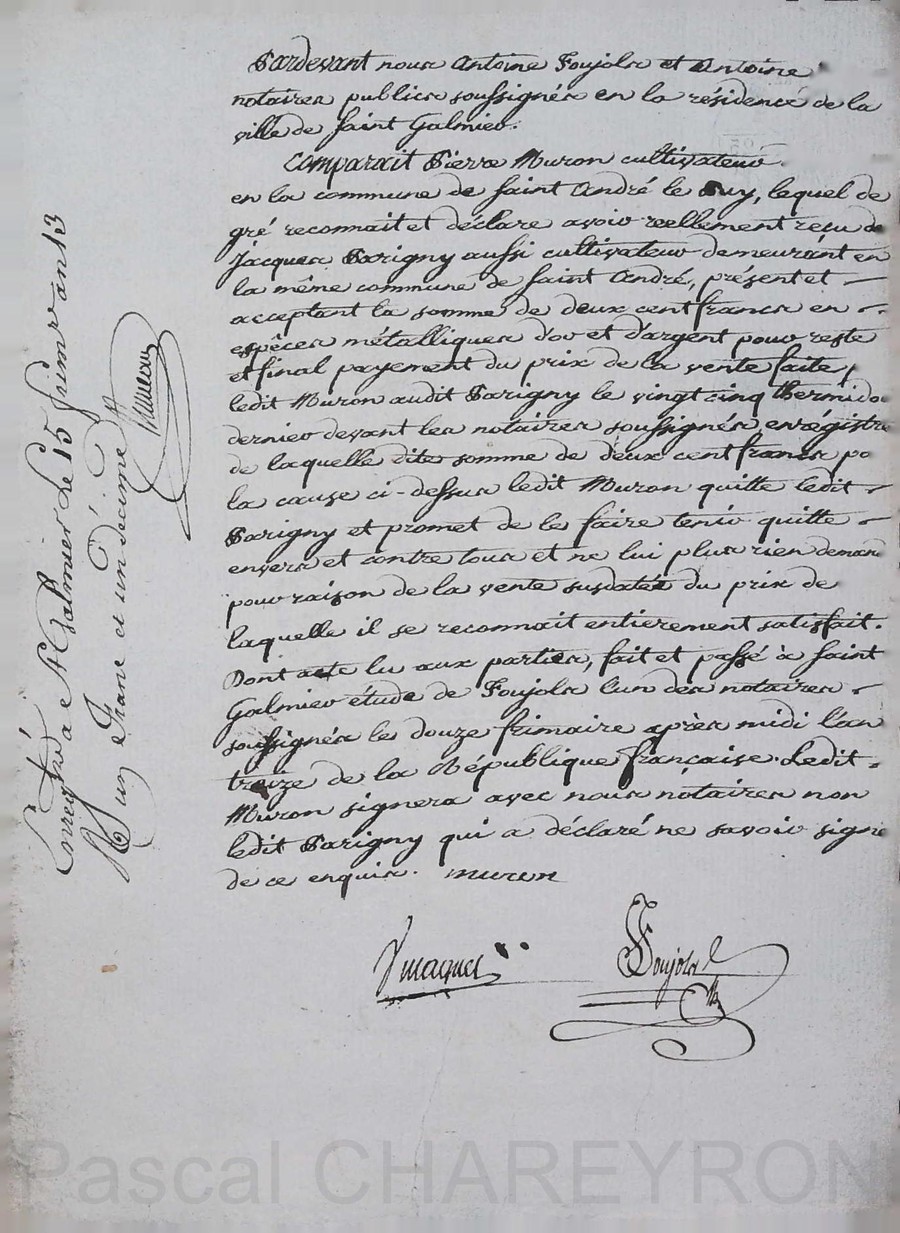 Pardevant nous Antoine Foujols et Antoine
notaires publics soussignés en la résidence de la
ville de Saint Galmier.
Comparait Pierre Muron cultivateur
en la commune de Saint André le Puy, lequel de
gré reconnait et déclare avoir reellement reçu de
Jacques Parigny aussi cultivateur demeurant en
la même commune de Saint André, présent et
acceptant la somme de deux cent francs en
espèces métalliques d'or et d'argent pour reste
et final payement du prix de la vente faite
ledit Muron audit Parigny le vingt cinq thermido
dernier devant les notaires soussignés, enrégistré
de laquelle dite somme de deux cent francs po
la cause ci-dessus ledit Muron quitte ledit
Parigny et promet de les faire tenir quitte
envers et contre tous et ne lui plus rien deman
pour raison de la vente susdatée du prix de
laquelle il se reconnait entierement satisfait.
Dont acte lu aux parties, fait et passé à Saint
Galmier étude de Foujols l'un des notaires
soussignés le douze frimaire après midi l'an
treize de la République française. Ledit
Muron signera avec nous notaires non
ledit Parigny qui a déclaré ne savoir signe
de ce enquis. muron
Foujols
Enregistré a St Galmier le 15 frimr an 13
R un franc et un decime
Pascal CHAREYRON